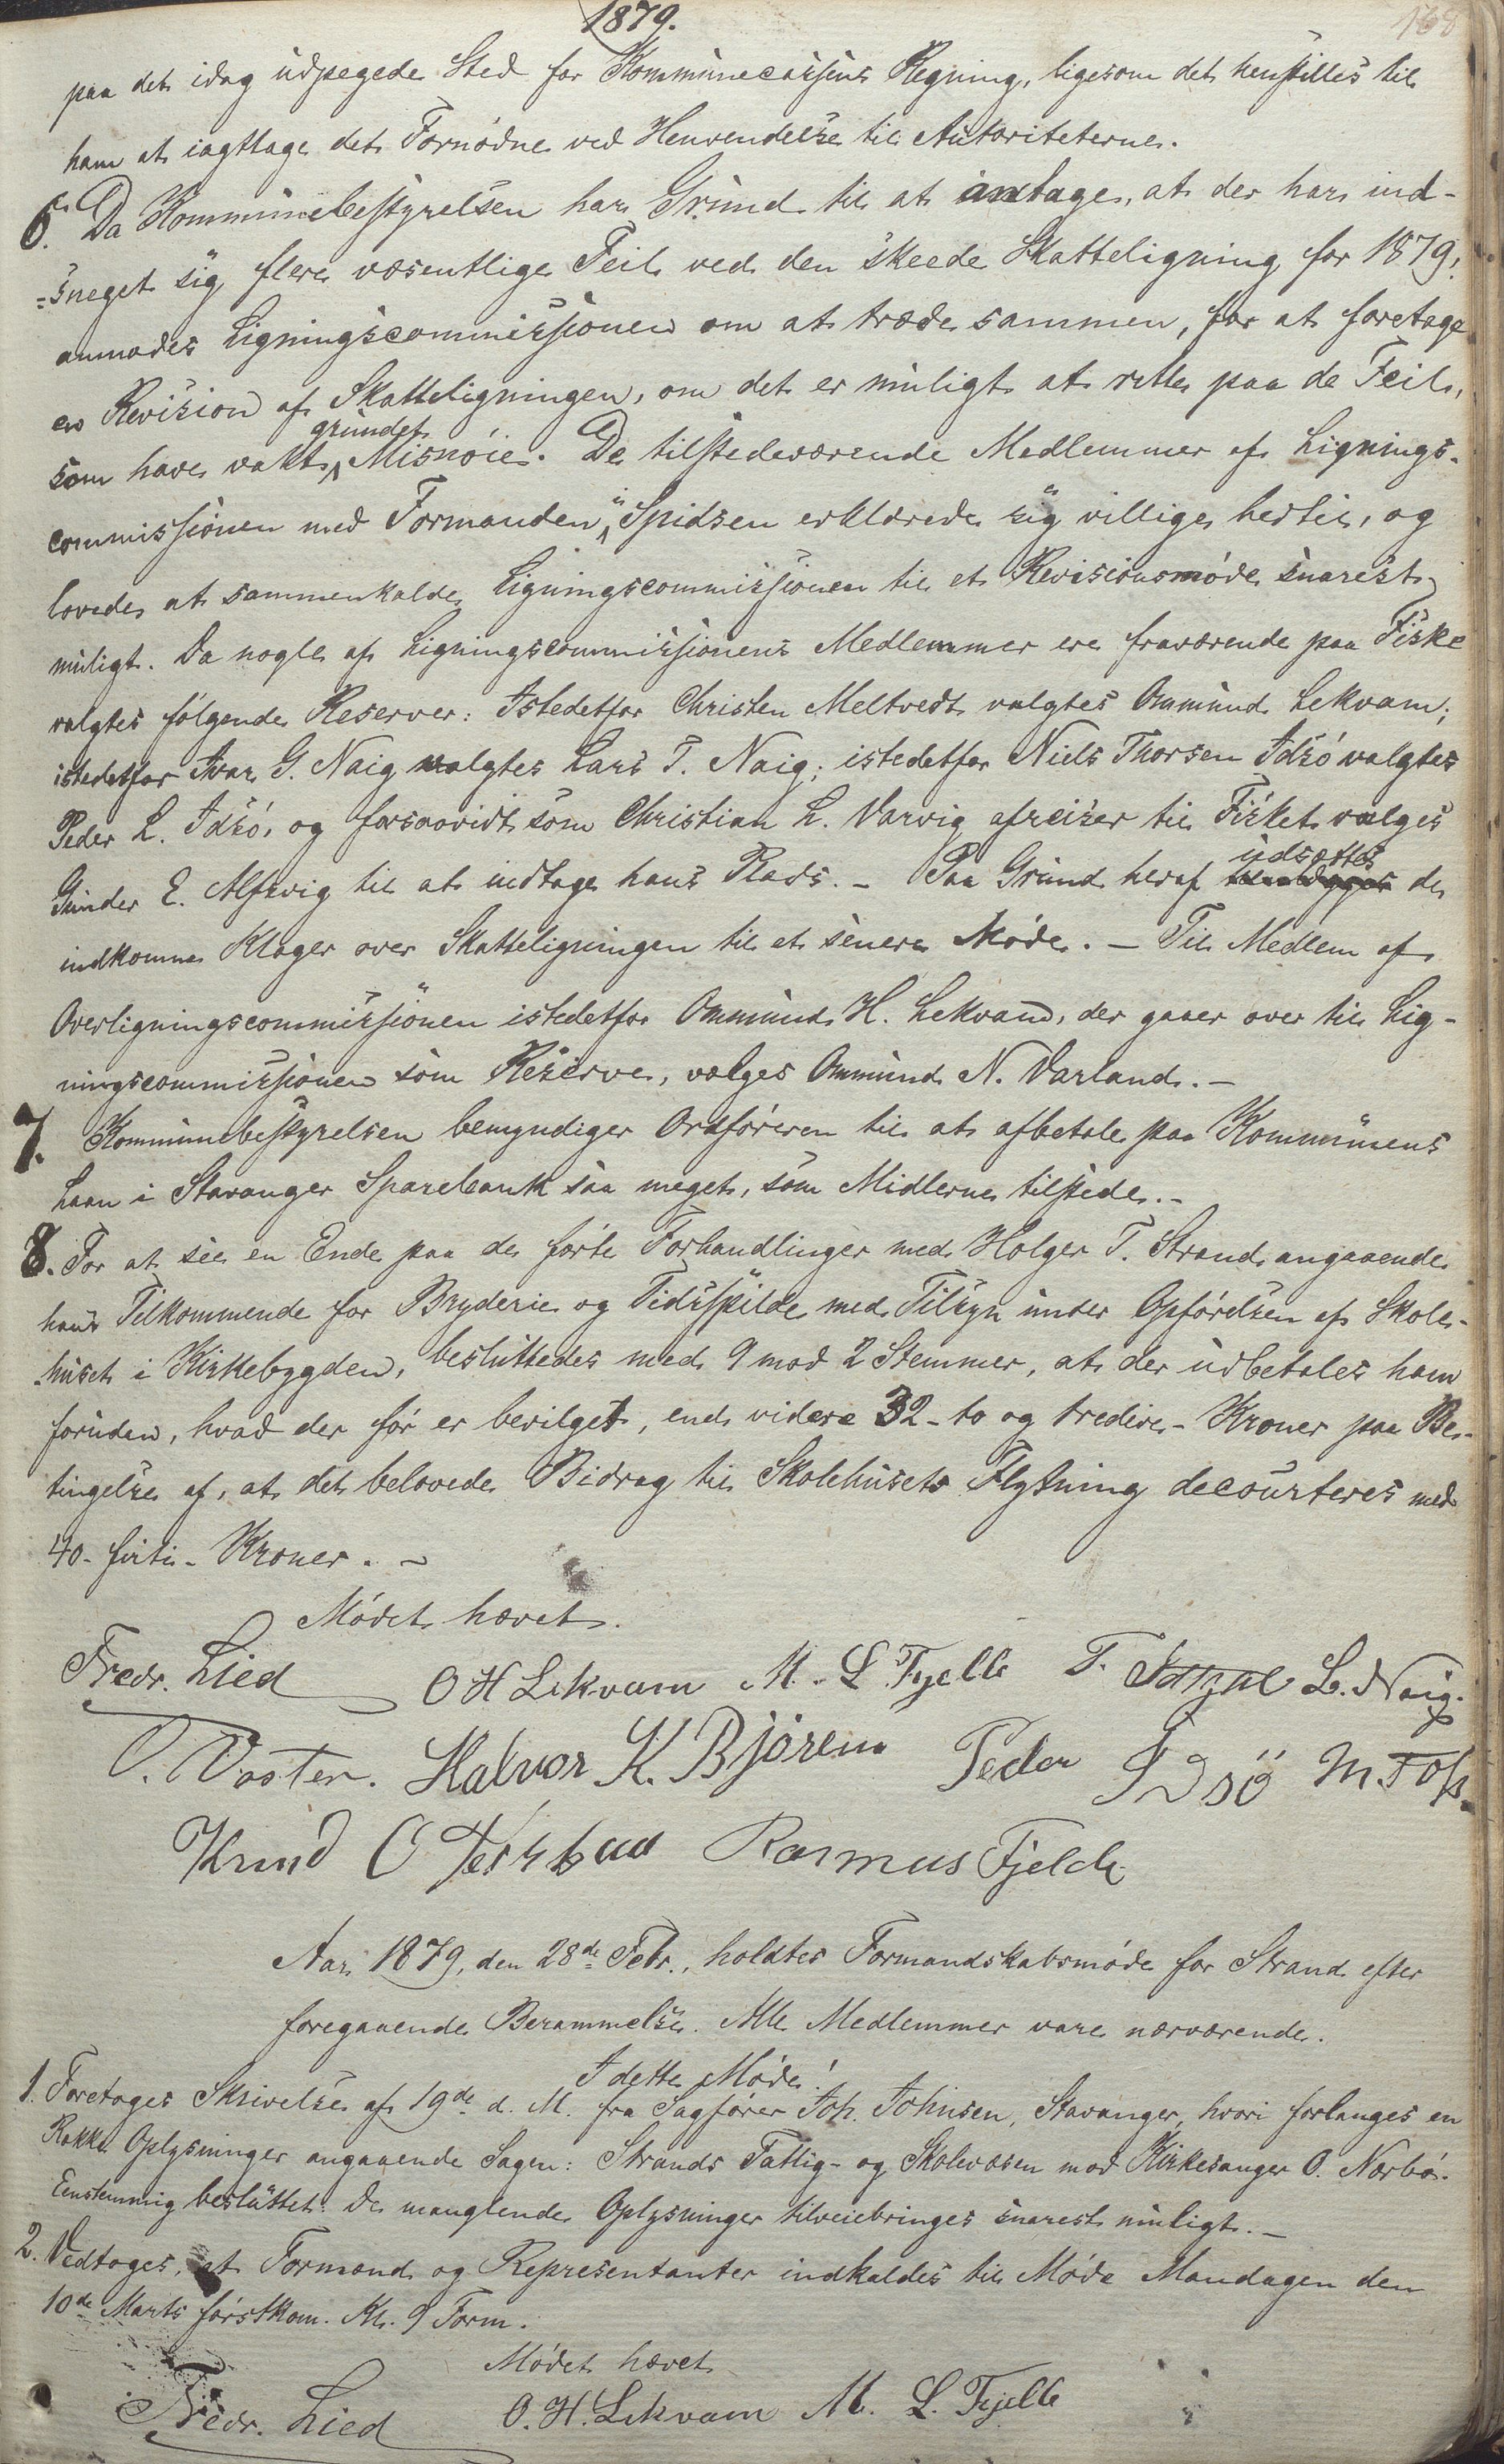 1879.
168
paa det idag udpegede Sted for Kommunecassens Regning, ligesom det henstilles til
ham at iagttage det Fornødne ved Henvendelse til Autoriteterne.
6. Da Kommunebestyrelsen har Grund til at antage, at der har ind-
=sneget sig flere væsentlige Feil ved den skeede Skatteligning for 1879,
anmodes Ligningscommissionen om at træde sammen, for at foretage
en Revision af Skatteligningen, om det er muligt at rette paa de Feil,
grundet
som have vakt Misnøie. De tilstedeværende Medlemmer af Lignings-
commissionen med Formanden i Spidsen erklærede sig villige hertil, og
lovede at sammenkalde Ligningscommissionen til et Revisionsmøde snarest
muligt. Da nogle af Ligningscommissionens Medlemmer ere fraværende paa Fiske
valgtes følgende Reserver: Istedetfor Christen Meltvedt valgtes Ommund Lekvam;
istedetfor Ivar G. Naig valgtes Lars T. Naig; istedetfor Niels Thorsen Idsø valgtes
Peder L. Idsø, og forsaavidt som Christian L. Varvig afreiser til Fisket vælges
Gunder E. Alfsvig til at indtage hans Plads. - Paa Grund heraf udsættes de
indkomne Klager over Skatteligningen til et senere Møde. - Til Medlem af
Overligningscommissionen istedetfor Ommund H. Lekvam, der gaaer over til Lig-
ningscommissionen som Reserve, vælges Ommund N. Varland. -
7. Kommunebestyrelsen bemyndiger Ordføreren til at afbetale paa Kommunens
Laan i Stavanger Sparebank saa meget, som Midlerne tilstede. -
8. For at see en Ende paa de førte Forhandlinger med Holger T. Strand angaaende
hans Tilkommende for Bryderie og Tidsspilde med Tilsyn under Opførelsen af Skole-
huset i Kirkebygden, besluttedes med 9 mod 2 Stemmer, at der udbetales ham
foruden, hvad der før er bevilget, end videre 32 - to og tredive - Kroner paa Be-
tingelse af, at det belovede Bidrag til Skolehusets Flytning decourteres med
40 - firti - Kroner. -
Mødet hævet.
Fredr. Lied O H Lekvam M. L. Fjelde T. L. Naig.
O. Voster. Halvor K. Bjøreim Peder Idsø M. Foss.
Knud O Rasmus Fjelde
Aar 1879, den 28de Febr., holdtes Formandskabsmøde for Strand efter
foregaaende Berammelse. Alle Medlemmer vare nærværende.
I dette Møde:
1. Foretoges Skrivelse af 19de d. M. fra Sagfører Joh. Johnsen, Stavanger, hvori forlanges en
Række Oplysninger angaaende Sagen: Strands Fattig- og Skolevæsen mod Kirkesanger O. Nærbø.
Eenstemmig besluttet: De manglende Oplysninger tilveiebringes snarest muligt. -
2. Vedtoges, at Formænd og Repræsentanter indkaldes til Møde Mandagen den
10de Marts førstkom. Kl. 9 Form.
Mødet hævet
Fredr. Lied O. H. Lekvam M. L. Fjelde